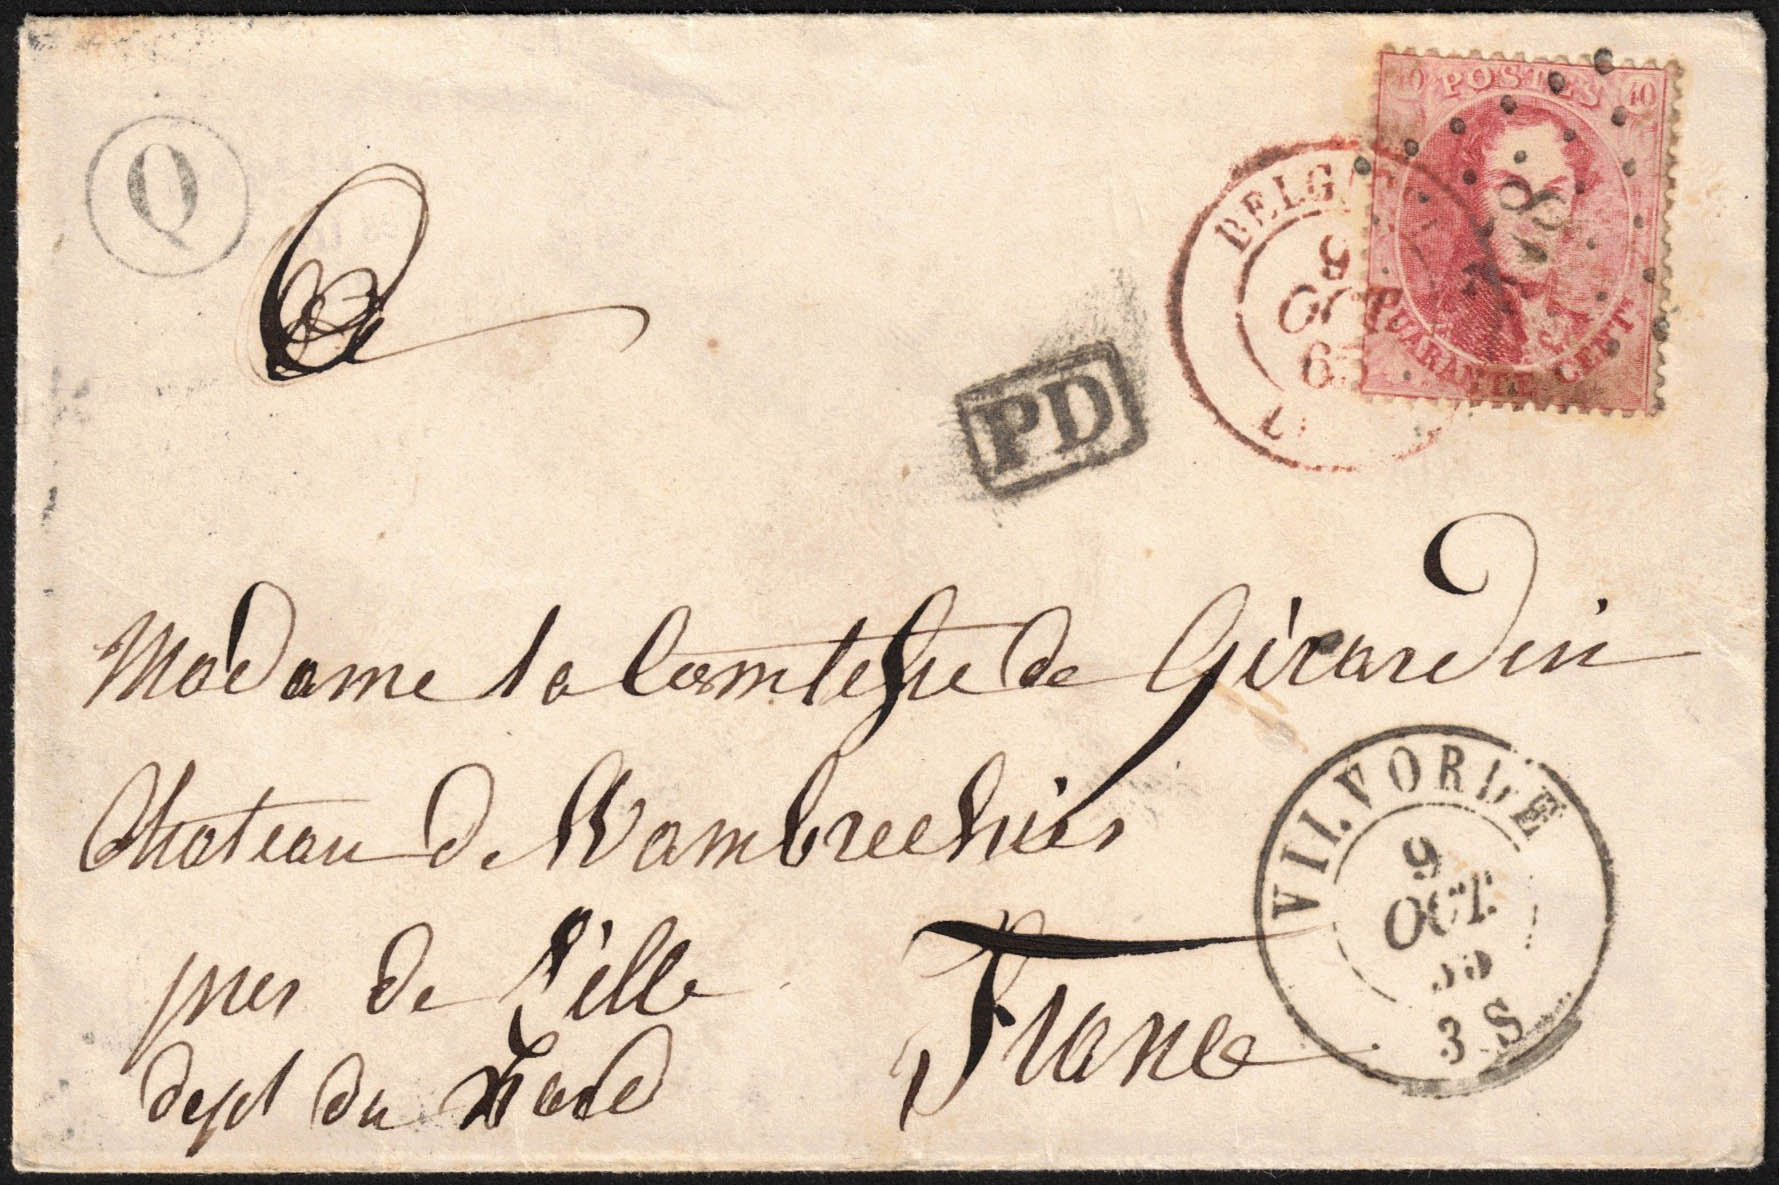 Q
40 POSTES 40
QUARANTE CENT
BELG
9
OCT
65
L
PD
A
Madame la Comtesse de Girardin
Chateau de Wambrechies
pres de Lille
dept du Nord
France
VILVORDE
9
OCT.
3 S